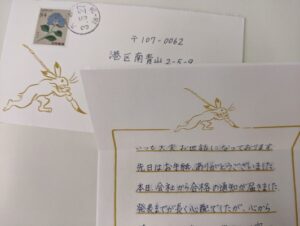 〒107-0062
港区南青山2-5-9
いつも大変お世話になっております
先日はお手紙、ありがとうございました
本日、会社から合格の通知が届きました
発表までが長く心配でしたが、心から